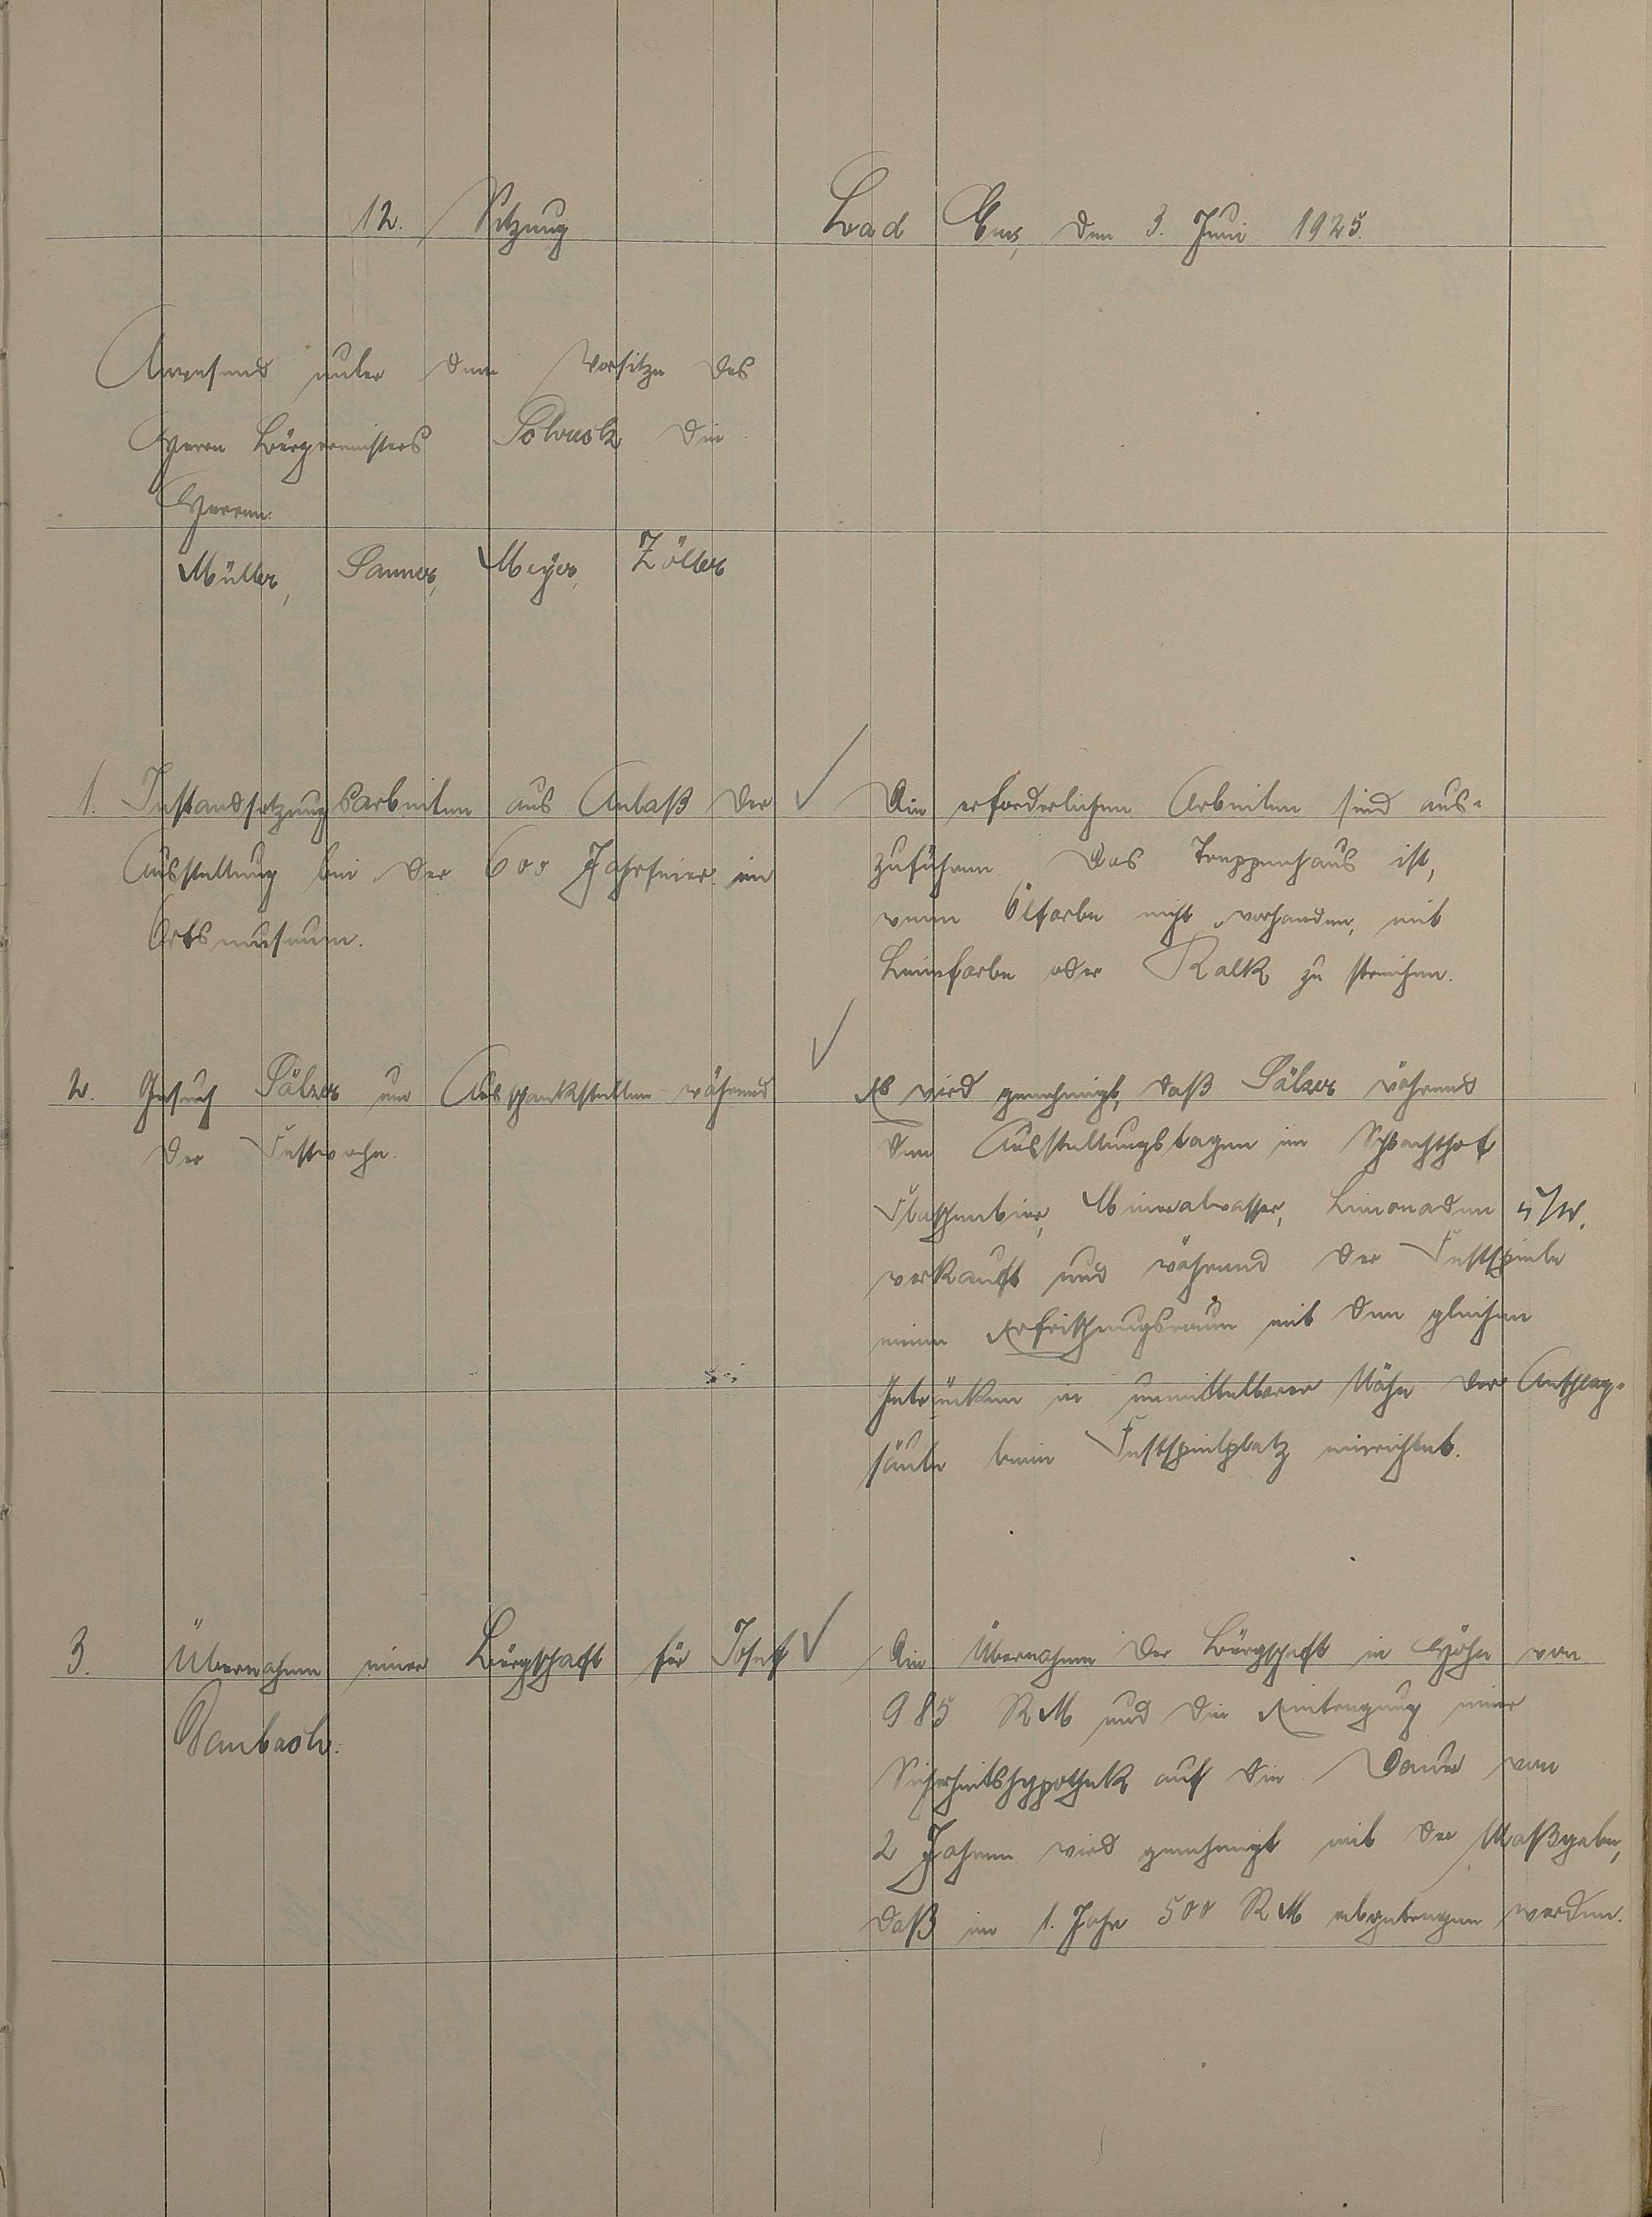 12. Sitzung
Bad Ems, den 3. Juni 1925.
Anwesend unter dem Vorsitze des
Herrn Bürgermeisters Schuck die
Herren:
Müller, Sanner, Meyer, Zöller
1. Instandsetzungsarbeiten aus Anlaß der
Ausstellung bei der 600 Jahrfeier im
Ortsmuseum.
Die erforderlichen Arbeiten sind aus-
zuführen. Das Treppenhaus ist,
wenn Ölfarbe nicht vorhanden, mit
Leimfarbe oder Kalk zu streichen.
2. Gesuch Sälzer um Ausschankstellen während
der Festwoche.
Es wird genehmigt, daß Sälzer während
den Ausstellungstagen im Schlachthof
Flaschenbier, Mineralwasser, Limonaden usw.
verkauft und während der Festspiele
einen Erfrischungsraum mit den gleichen
Getränken in unmittelbarer Nähe der Anschlag-
säule beim Festspielplatz einrichtet.
3. Übernahme einer Bürgschaft für Josef
Bambach.
Die Übernahme der Bürgschaft in Höhe von
985 RM und die Eintragung einer
Sicherheitshypothek auf die Dauer von
2 Jahren wird genehmigt mit der Maßgabe,
daß im 1. Jahr 500 RM abgetragen werden.